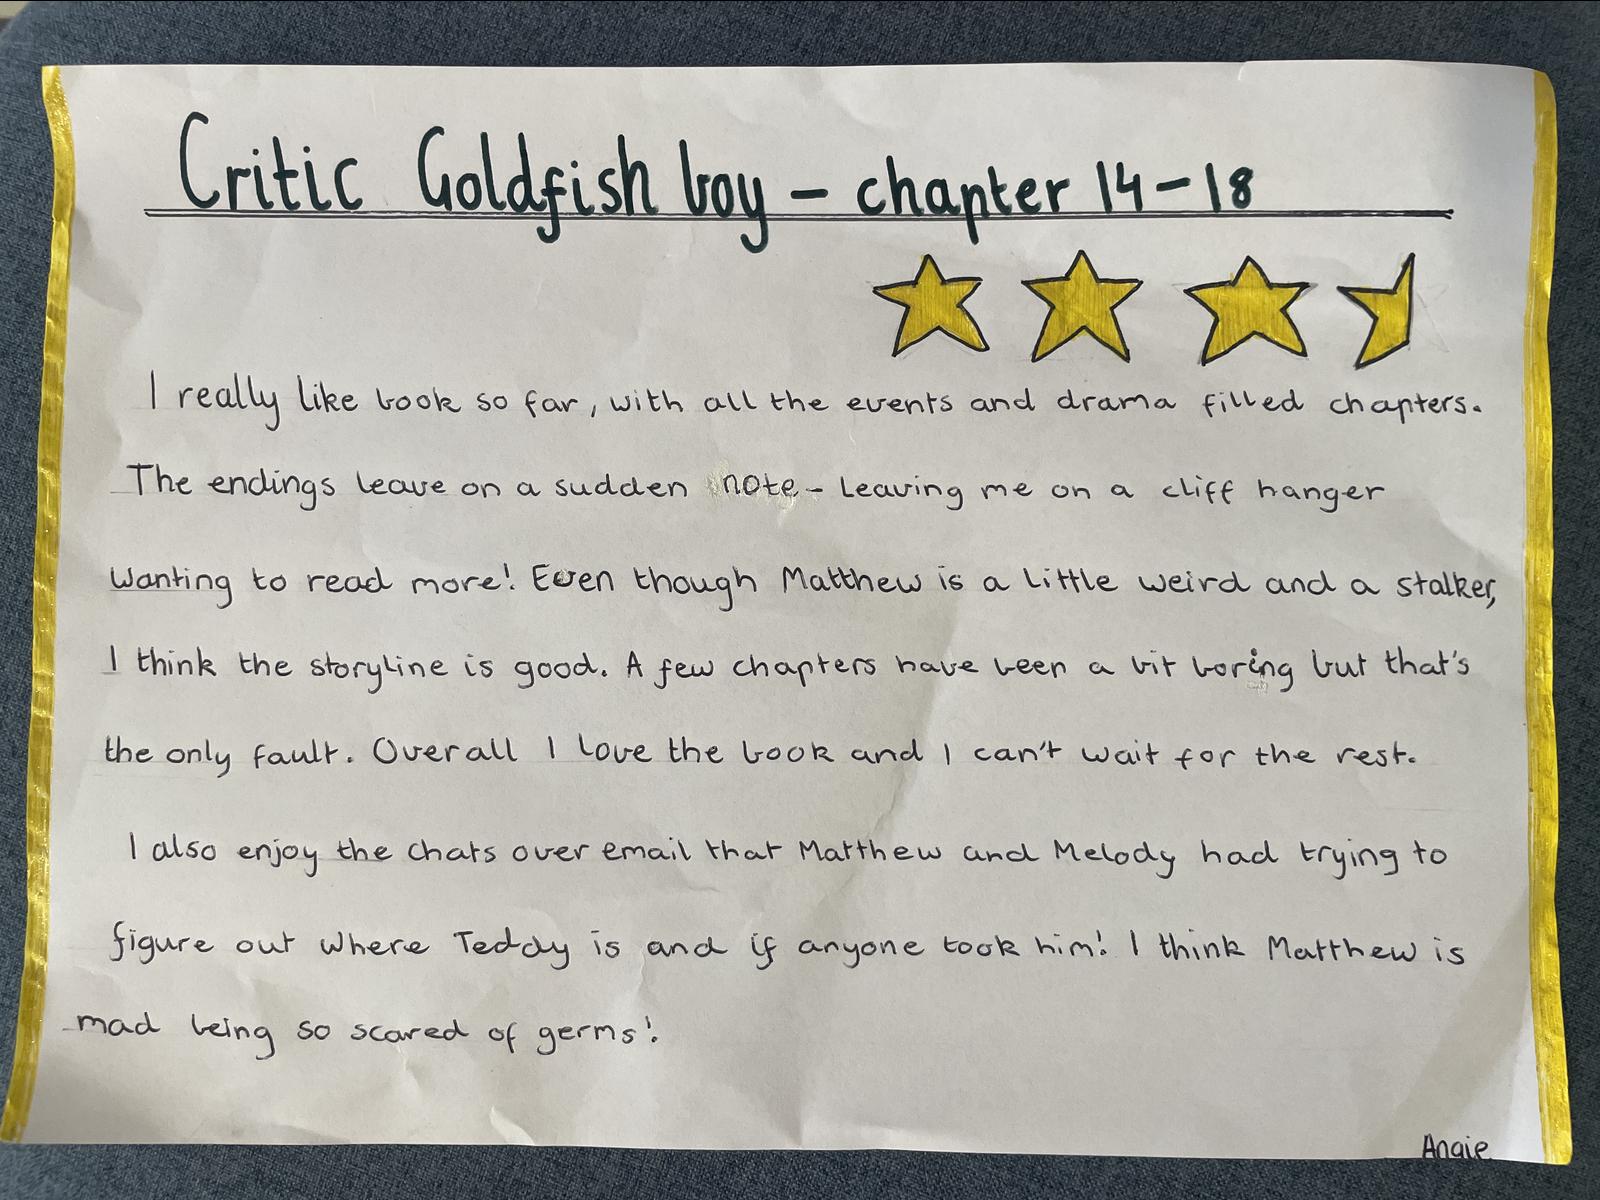 Critic Goldfish boy – chapter 14–18
I really like book so far, with all the events and drama filled chapters.
The endings leave on a sudden note – leaving me on a cliff hanger
wanting to read more! Even though Matthew is a little weird and a stalker,
I think the storyline is good. A few chapters have been a bit boring but that's
the only fault. Overall I love the book and I can't wait for the rest.
I also enjoy the chats over email that Matthew and Melody had trying to
figure out where Teddy is and if anyone took him! I think Matthew is
mad being so scared of germs!
Angie